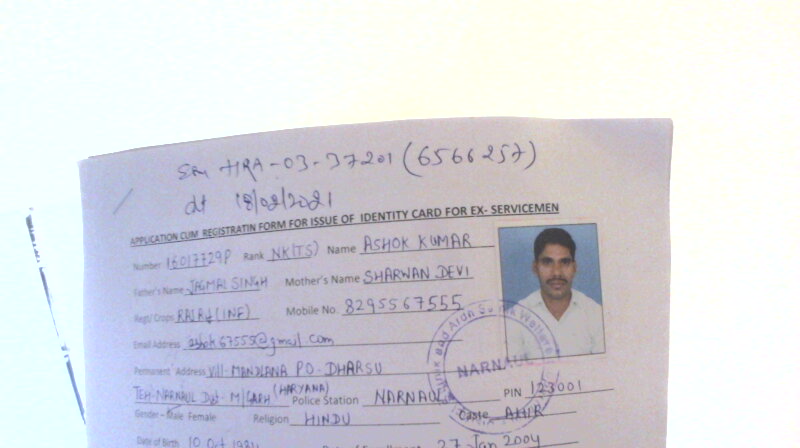 Sm HRA-03-37201 (6566257)
dt 18/02/2021
APPLICATION CUM REGISTRATIN FORM FOR ISSUE OF IDENTITY CARD FOR EX- SERVICEMEN
Number 16017729P Rank NK(TS) Name ASHOK KUMAR
Father's Name JAGMAL SINGH Mother's Name SHARWAN DEVI
Regt/ Crops RAJ RIF (INF) Mobile No. 8295567555
Email Address ashok67555@gmail.com
Permanent Address Vill-MANDLANA PO-DHARSU
Teh-NARNAUL Dist- M/GARH (HARYANA) Police Station NARNAUL PIN 123001
Gender – Male Female Religion HINDU Caste AHIR
Date of Birth 10 Oct 27 Jan 2004
NARNAUL